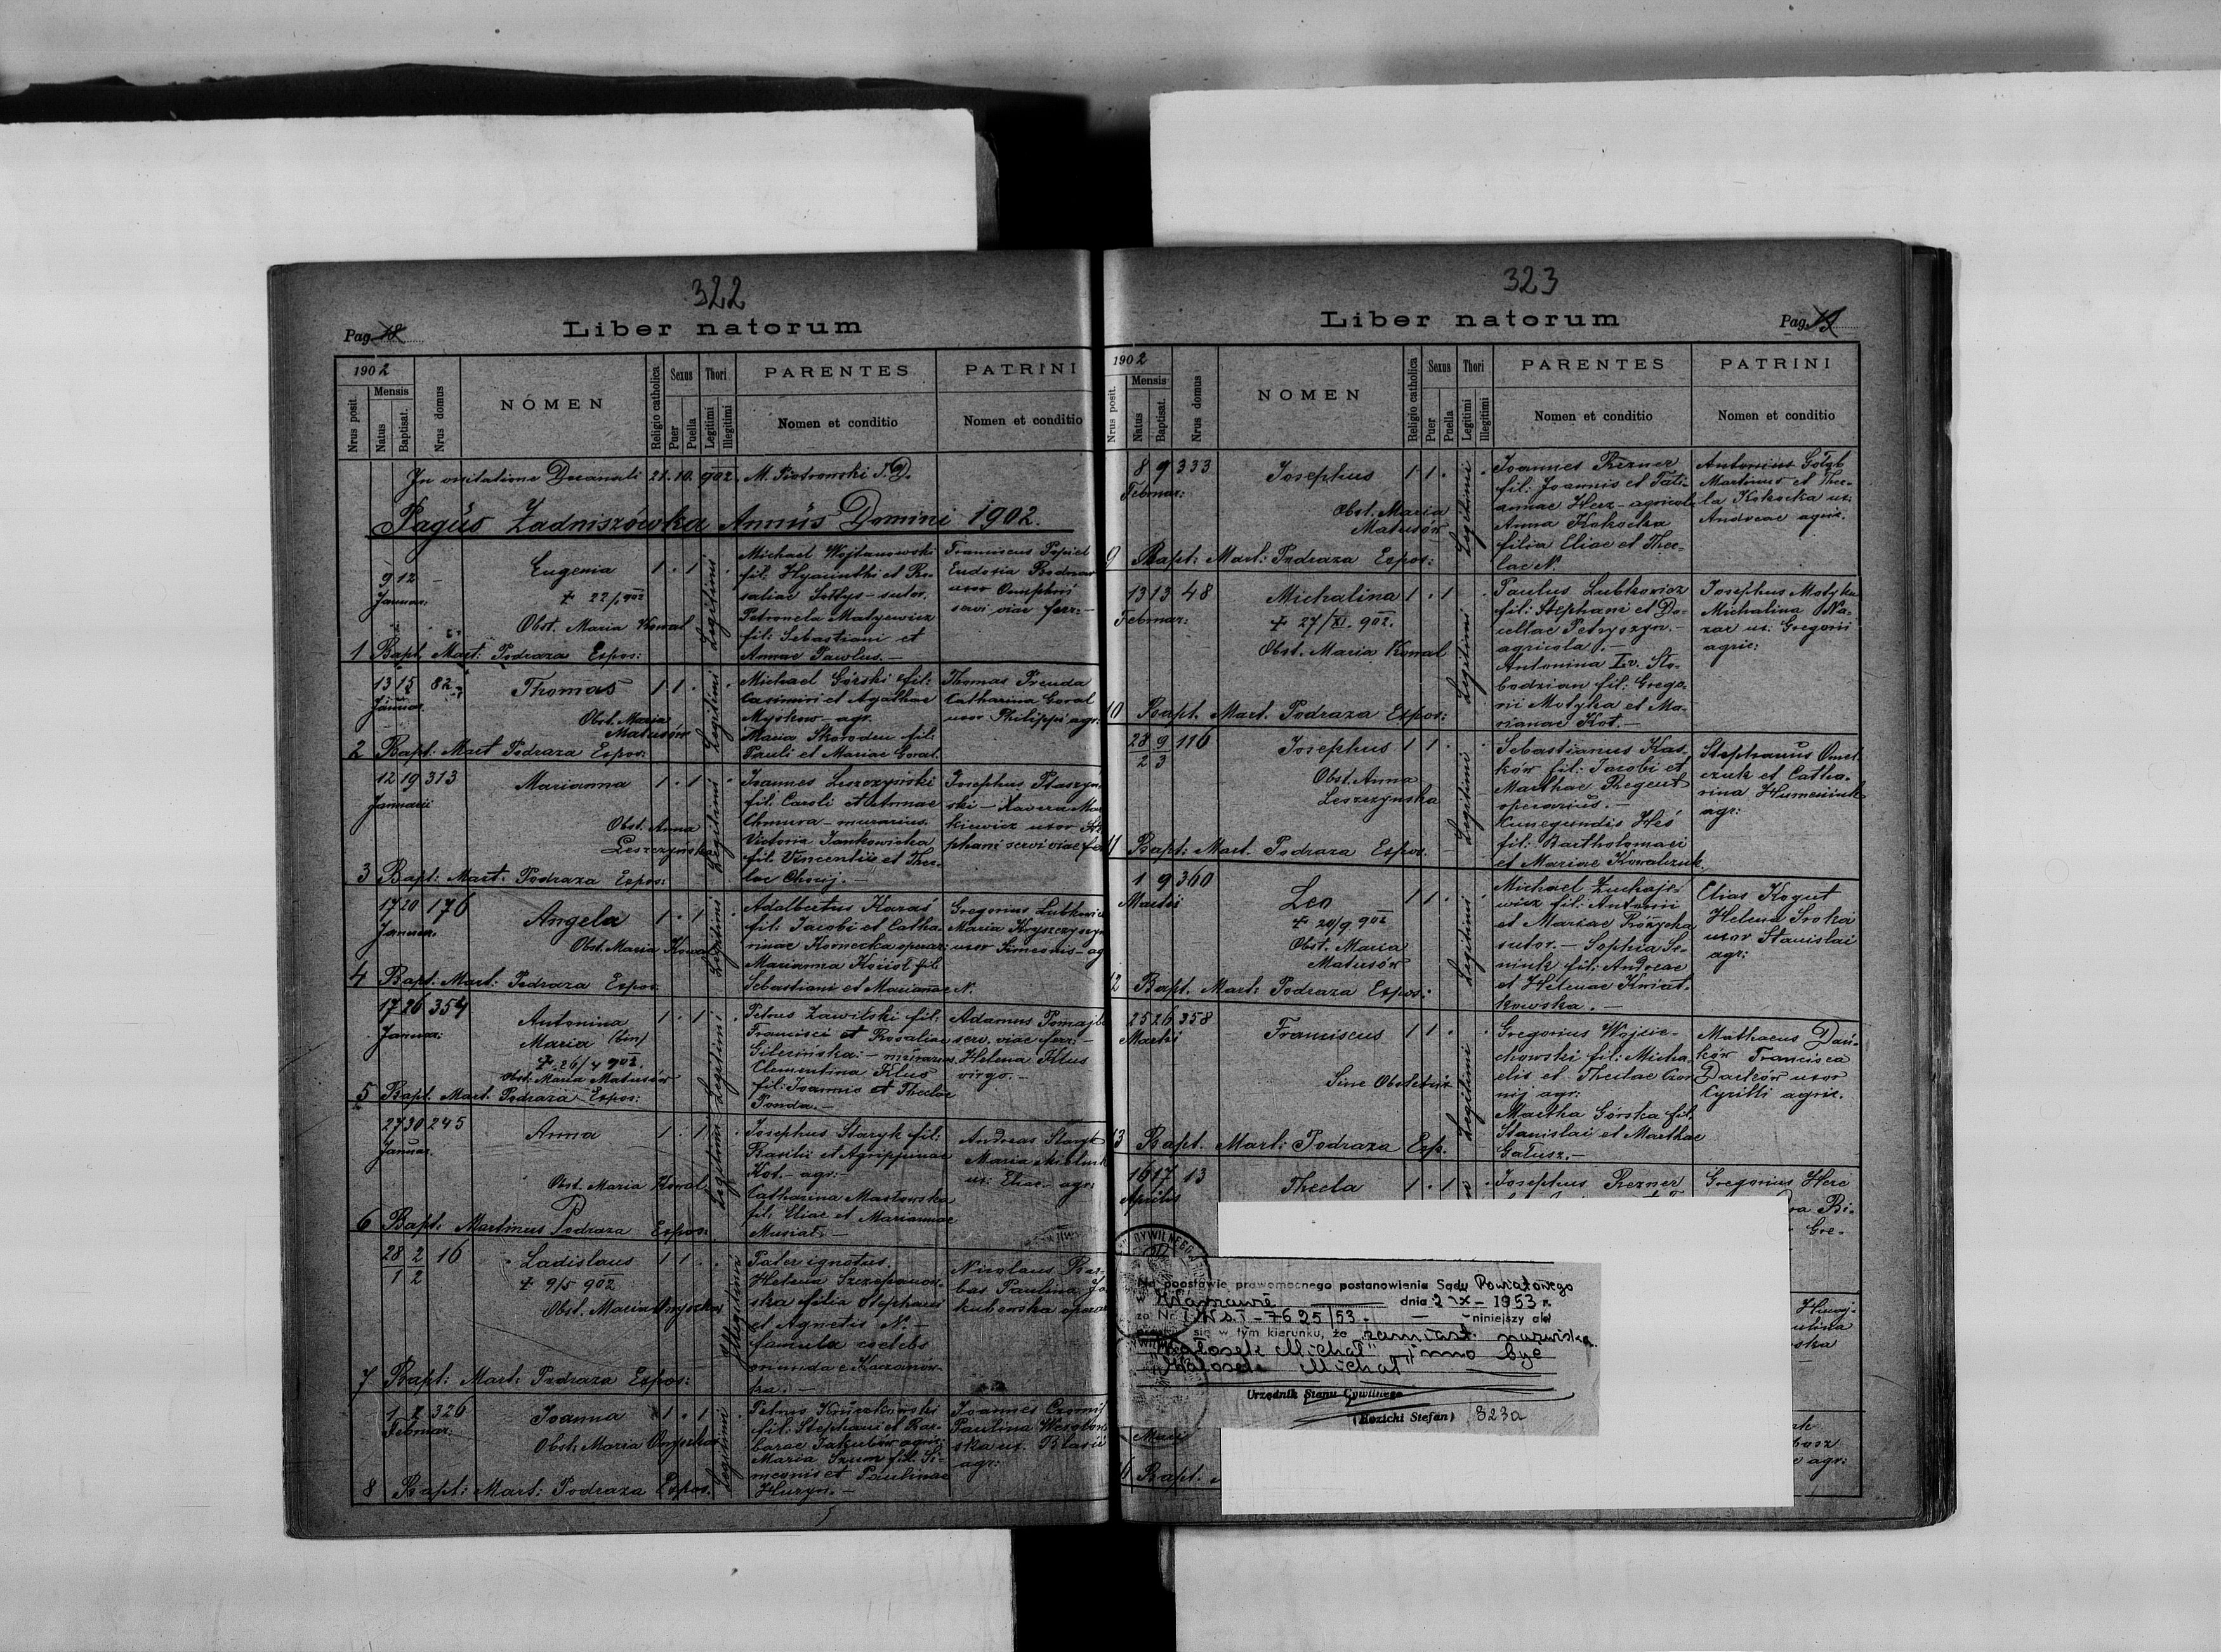 322
Pag. 18
Liber natorum
1902
Nrus posit.
Mensis
Natus
Baptisat.
Nrus domus
NOMEN
Religio catholica
Sexus
Puer
Puella
Thori
Legitimi
Illegitimi
PARENTES
Nomen et conditio
PATRINI
Nomen et conditio
In visitatione Decanali 21.10.902. M. Piotrowski
Pagus Zadniszówka Annus Domini 1902.
9 12 -
Januar:
Eugenia
Obst. Maria Kowal
1 . 1
Legitimi
Michael Wojtanowski
fil: Hyacinthi et Ro-
saliae Sołtys - sutor.
Petronela Matyewicz
fil: Sebastiani et
Annae Pawlus. -
Franciscus Popiel
Eudoxia Bodnar
uxor Onuphrii
servi viae ferr: -
1 Bapt. Mart: Podraza Expos:
13 15 82
Januar.
Thomas
Obst. Maria
Matusów
1 1 .
Legitimi
Michael Górski fil:
Casimiri et Agathae
Myskow - agr.
Maria Skoroden fil:
Pauli et Mariae Goral.
Thomas Preuda
Catharina Goral
uxor Philippi agr:
2 Bapt: Mart Podraza Expos:
12 19 313
Januarii
Marianna
Obst. Anna
Leszczyńska
1 . 1
Legitimi
Joannes Leszczyński
fil: Caroli et Annae
Chmura - murarius.
Victoria Jankowicka
fil: Vincentii et Thec-
lae
Josephus Staszyń
ski - Xavera Mar
kiewicz uxor Ste
phani servi viae fe
3 Bapt: Mart. Podraza Expos:
17 20 176
Januar.
Angela
Obst. Maria Kowal
1 . 1
Legitimi
Adalbertus Karaś
fil: Jacobi et Catha
rinae Kornecka operar:
Marianna Kozioł fil
Sebastiani et Marianae N.
Gregorius Lubkowicz
Maria Kryszczyszyn
uxor Simeonis - ag
4 Bapt: Mart: Podraza Expos.
17 26 354
Januar:
Antonina
Maria (bin)
26/4 902.
Obst: Maria Matusów
1 . 1
Legitimi
Petrus Zawilski fil:
Francisci et Rosaliae
Gilecińska: - murarius.
Clementina Klus
fil: Joannis et Theclae
Ponda. -
Adamus Pomajb
serv. viae ferr: -
Helena Klus
virgo. -
5 Bapt. Mart: Podraza Expos:
27 30 245
Januar.
Anna
Obst. Maria Kowal
1 . 1
Legitimi
Josephus Staryk fil:
Basilii et Agrippinae
Kot. - agr: -
Catharina Masłowska
fil: Eliae et Mariannae
Musiat. -
Andreas
Maria
ux: Eliae - agr:
6 Bapt: Martinus Podraza Expos:
28 2 16
1 2
Ladislaus
9/5 902
Obst. Maria Onyszków
1 1 .
Illegitimi
Pater ignotus.
Helena Szczepanow-
ska filia Stephani
et Agnetis N. -
famula coelebs
oriunda e Kaczanów-
ka. -
Nicolaus Bar-
bas Paulina Ja
kubowska operar
7 Bapt: Mart: Podraza Expos:
1 2 326
Februar:
Joanna
Obst. Maria
1 . 1
Legitimi
Petrus Kruszkowski
fil: Stephani et Bar-
barae Jakubów agric:
Maria Szum fil: Si-
meonis et Paulinae
Huzyn. -
Joannes
Paulina
ska ux. Blasii
agr:
8 Bapt: Mart: Podraza Expos.
323
Liber natorum
Pag. 19
1902
Nrus posit.
Mensis
Natus
Baptisat.
Nrus domus
NOMEN
Religio catholica
Sexus
Puer
Puella
Thori
Legitimi
Illegitimi
PARENTES
Nomen et conditio
PATRINI
Nomen et conditio
8 9 333
Februar:
Josephus
Obst. Maria
Matusów
1 1 .
Legitimi
Joannes Rezner
fil: Joannis et Tati-
annae Herz - agricola
Anna Kokocka
filia Eliae et Thec-
lae N.
Antonius Gołąb
Martinus et Thec-
la Kokocka ux:
Andreae agric.
9 Bapt: Mart: Podraza Expos:
13 13 48
Februar:
Michalina
27/XI. 902.
Obst. Maria Kowal
1 . 1
Legitimi
Paulus Lubkowicz
fil: Stephani et Do-
cellae Petryszyn. -
agricola. -
Antonina I.v. Sło-
bodzian fil: Grego-
rii Motyka et Ma-
rianae Kot. -
Josephus Motyka
Michalina Na-
zar ux: Gregorii
agric:
10 Bapt. Mart. Podraza Expos:
28 9 116
2 3
Josephus
Obst. Anna
Leszczyńska
1 1 .
Legitimi
Sebastianus Kas-
ków fil: Jacobi et
Marthae Regeut
operarius. -
Kunegundis Heś
fil: Bartholomaei
et Mariae Kowalczuk.
Stephanus Omel-
czuk et Catha-
rina Humeniuk
agr:
11 Bapt: Mart. Podraza Expos.
1 9 360
Martii
Leo
20/9 902
Obst. Maria
Matusów
1 1 .
Legitimi
Michael Zuchaje-
wicz fil: Antonii
et Mariae Różycka
sutor. - Sophia Se-
niuk fil: Andreae
et Helenae Kwiat-
kowska. -
Elias Kogut
Helena Sroka
uxor Stanislai
agr:
12 Bapt. Mart: Podraza Expos:
25 26 358
Martii
Franciscus
Sine Obstetrix
1 1 .
Legitimi
Gregorius Wojcie-
chowski fil: Micha-
elis et Theclae Czor
nij agr:
Martha Górska fil.
Stanislai et Marthae
Gałusz. -
Mathaeus Dań-
ków Francisca
Dańków uxor
Cyrilli agric.
13 Bapt. Mart: Podraza Exp.
16 17 13
Aprilis
Thecla
1 . 1
Josephus Rezner
Gregorius Herc
Gre-
Na podstawie prawomocnego postanowienia Sądu Powiatowego
w dnia 2 IX - 1953 r.
za Nr. I Ns. I - 7625/53. - niniejszy akt
się w tym kierunku, że zamiast nazwiska
Michał" winno być
Michał"
Urzędnik Stanu Cywilnego
(Rozicki Stefan) 323a
agr:
Bapt.